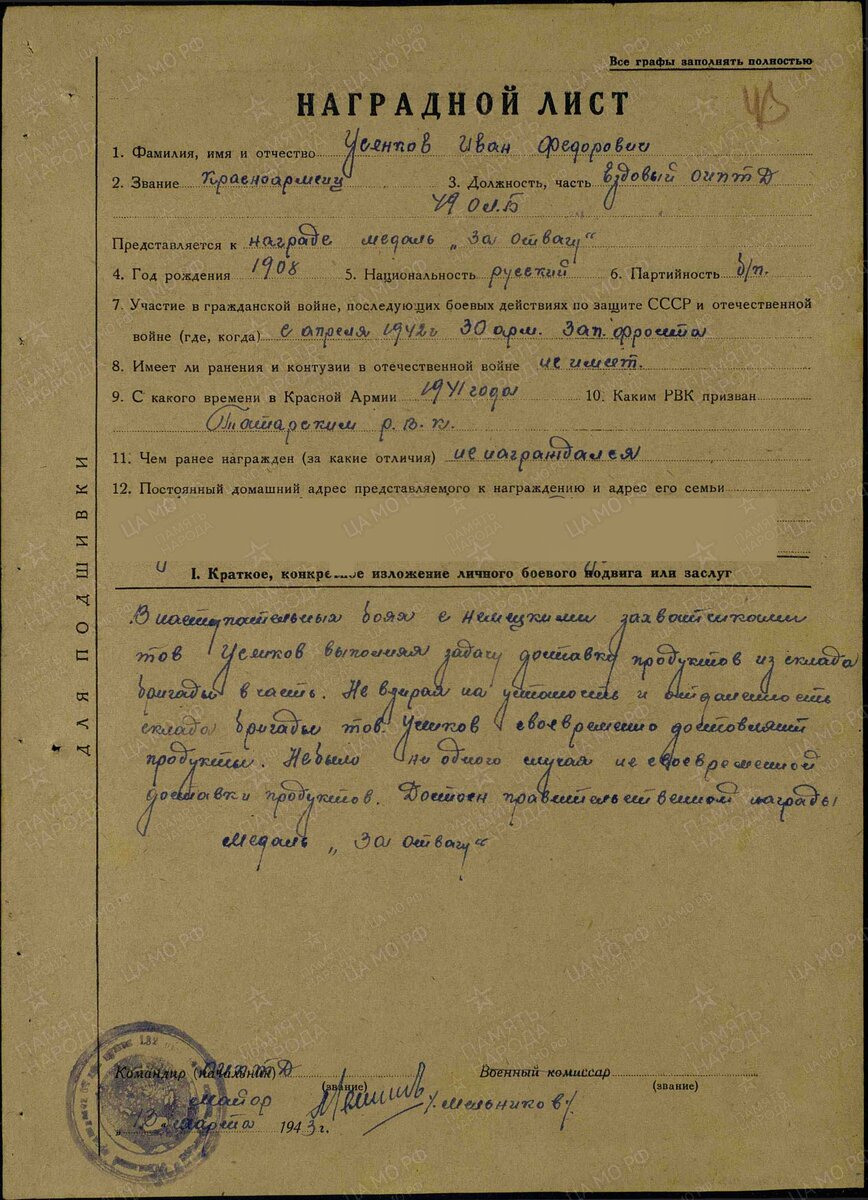 Все графы заполнять полностью
НАГРАДНОЙ ЛИСТ
1. Фамилия, имя и отчество Усенков Иван Федорович
2. Звание Красноармеец 3. Должность, часть Ездовый ОИПТД
49 О.Л.Б
Представляется к награде медаль „За отвагу“
4. Год рождения 1908 5. Национальность русский 6. Партийность б/п.
7. Участие в гражданской войне, последующих боевых действиях по защите СССР и отечественной
войне (где, когда) с апреля 1942г 30 арм. Зап. фронта
8. Имеет ли ранения и контузии в отечественной войне не имеет.
9. С какого времени в Красной Армии 1941 года 10. Каким РВК призван
Татарским р.в.к.
11. Чем ранее награжден (за какие отличия) не награждался
12. Постоянный домашний адрес представляемого к награждению и адрес его семьи
I. Краткое, конкретное изложение личного боевого подвига или заслуг
В наступательных боях с немецкими захватчиками
тов Усенков выполнял задачу доставку продуктов из склада
бригады в часть. Не взирая на усталость и отдаленность
склада бригады тов. Усенков своевременно доставлял
продукты. Небыло ни одного случая не своевременной
доставки продуктов. Достоен правительственной награды
медаль „За отвагу“
Командир (начальник) ОИПТД Военный комиссар
(звание) (звание)
майор /Мельников/.
„13“ марта 1943 г.
ДЛЯ ПОДШИВКИ
ЦА МО РФ
ПАМЯТЬ НАРОДА